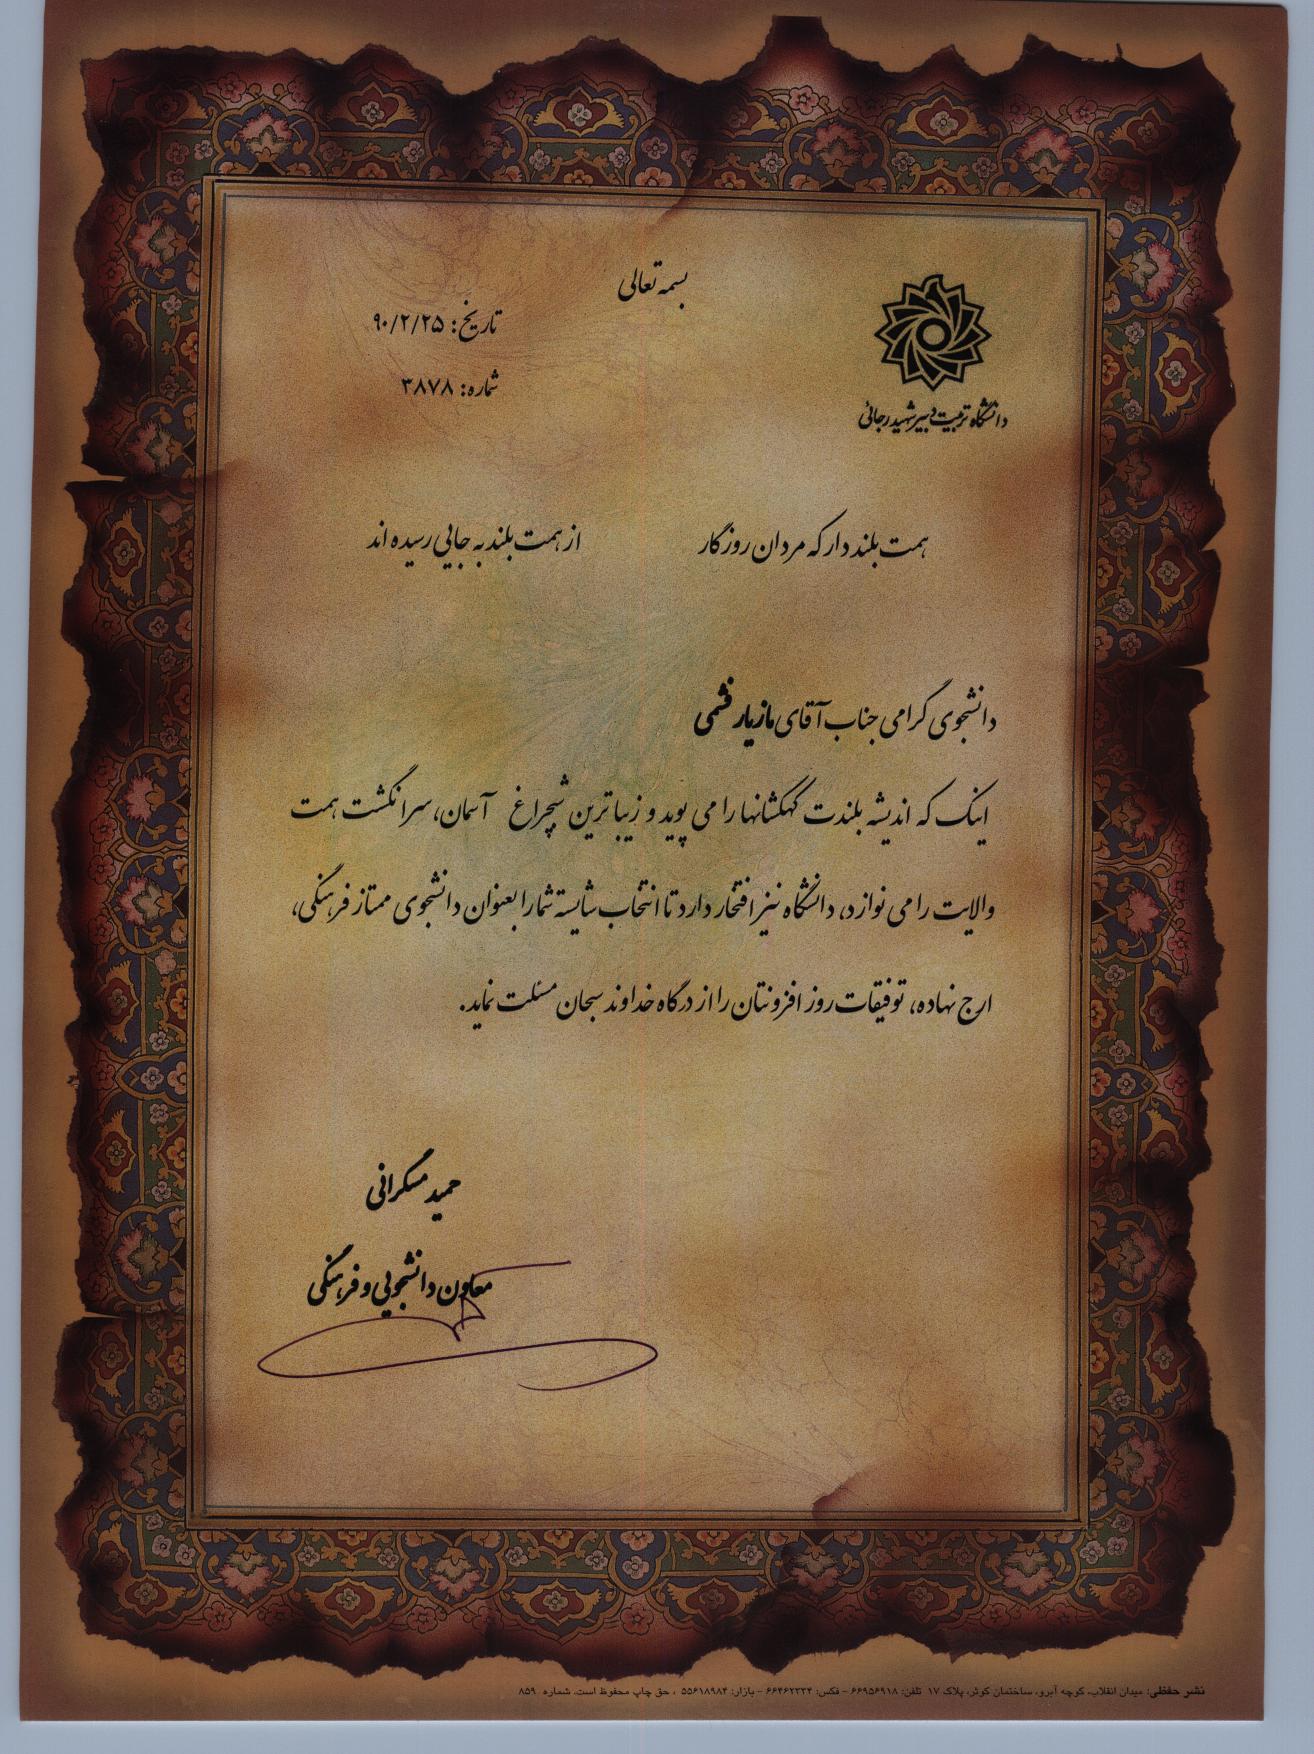 بسمه تعالی
تاریخ: ۹۰/۲/۲۵
شماره: ۳۸۷۸
دانشگاه تربیت دبیر شهید رجائی
همت بلند دار که مردان روزگار از همت بلند به جایی رسیده اند
دانشجوی گرامی جناب آقای مازیار قشمی
اینک که اندیشه بلندت کهکشانها را می پوید و زیباترین شبچراغ آسمان، سرانگشت همت
والایت را می نوازد، دانشگاه نیز افتخار دارد تا انتخاب شایسته شما را بعنوان دانشجوی ممتاز فرهنگی،
ارج نهاده، توفیقات روز افزونتان را از درگاه خداوند سبحان مسئلت نماید.
حمید مسکرانی
معاون دانشجویی و فرهنگی
نشر حفظی: میدان انقلاب، کوچه آبرو، ساختمان کوثر، پلاک ۱۷ تلفن: ۶۶۹۵۶۹۱۸ - فکس: ۶۶۴۶۲۳۳۴ - بازار: ۵۵۶۱۸۹۸۴ ، حق چاپ محفوظ است. شماره ۸۵۹